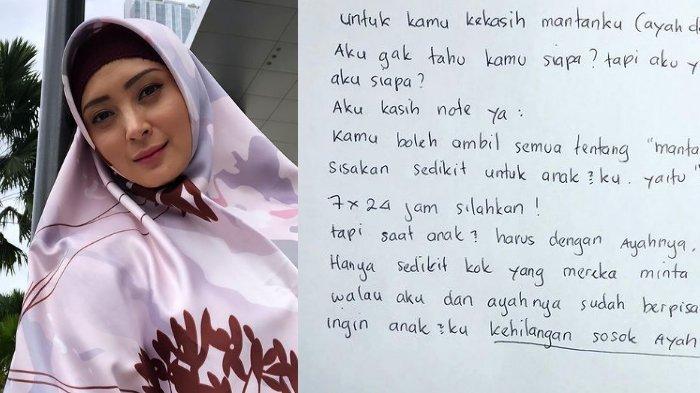 untuk kamu kekasih mantanku (ayah
Aku gak tahu kamu siapa? tapi aku
aku siapa?
Aku kasih note ya :
kamu boleh ambil semua tentang "manta
sisakan sedikit untuk anak²ku. yaitu "
7x24 jam silahkan !
tapi saat anak² harus dengan Ayahnya.
Hanya sedikit kok yang mereka minta
walau aku dan ayahnya sudah berpisa
ingin anak²ku kehilangan sosok Ayah